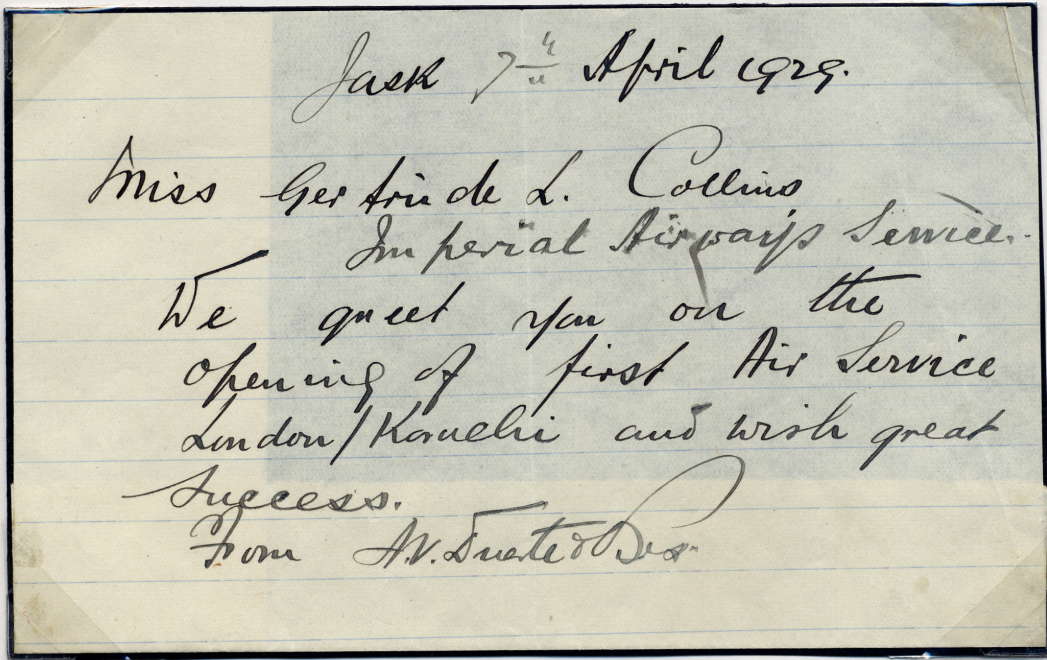 Jask 7th April 1929.
Miss Gertrude L. Collins
Imperial Airways Service.
We greet you on the
opening of first Air Service
London/Karachi and wish great
success.
From A.V. Duarte & Bros